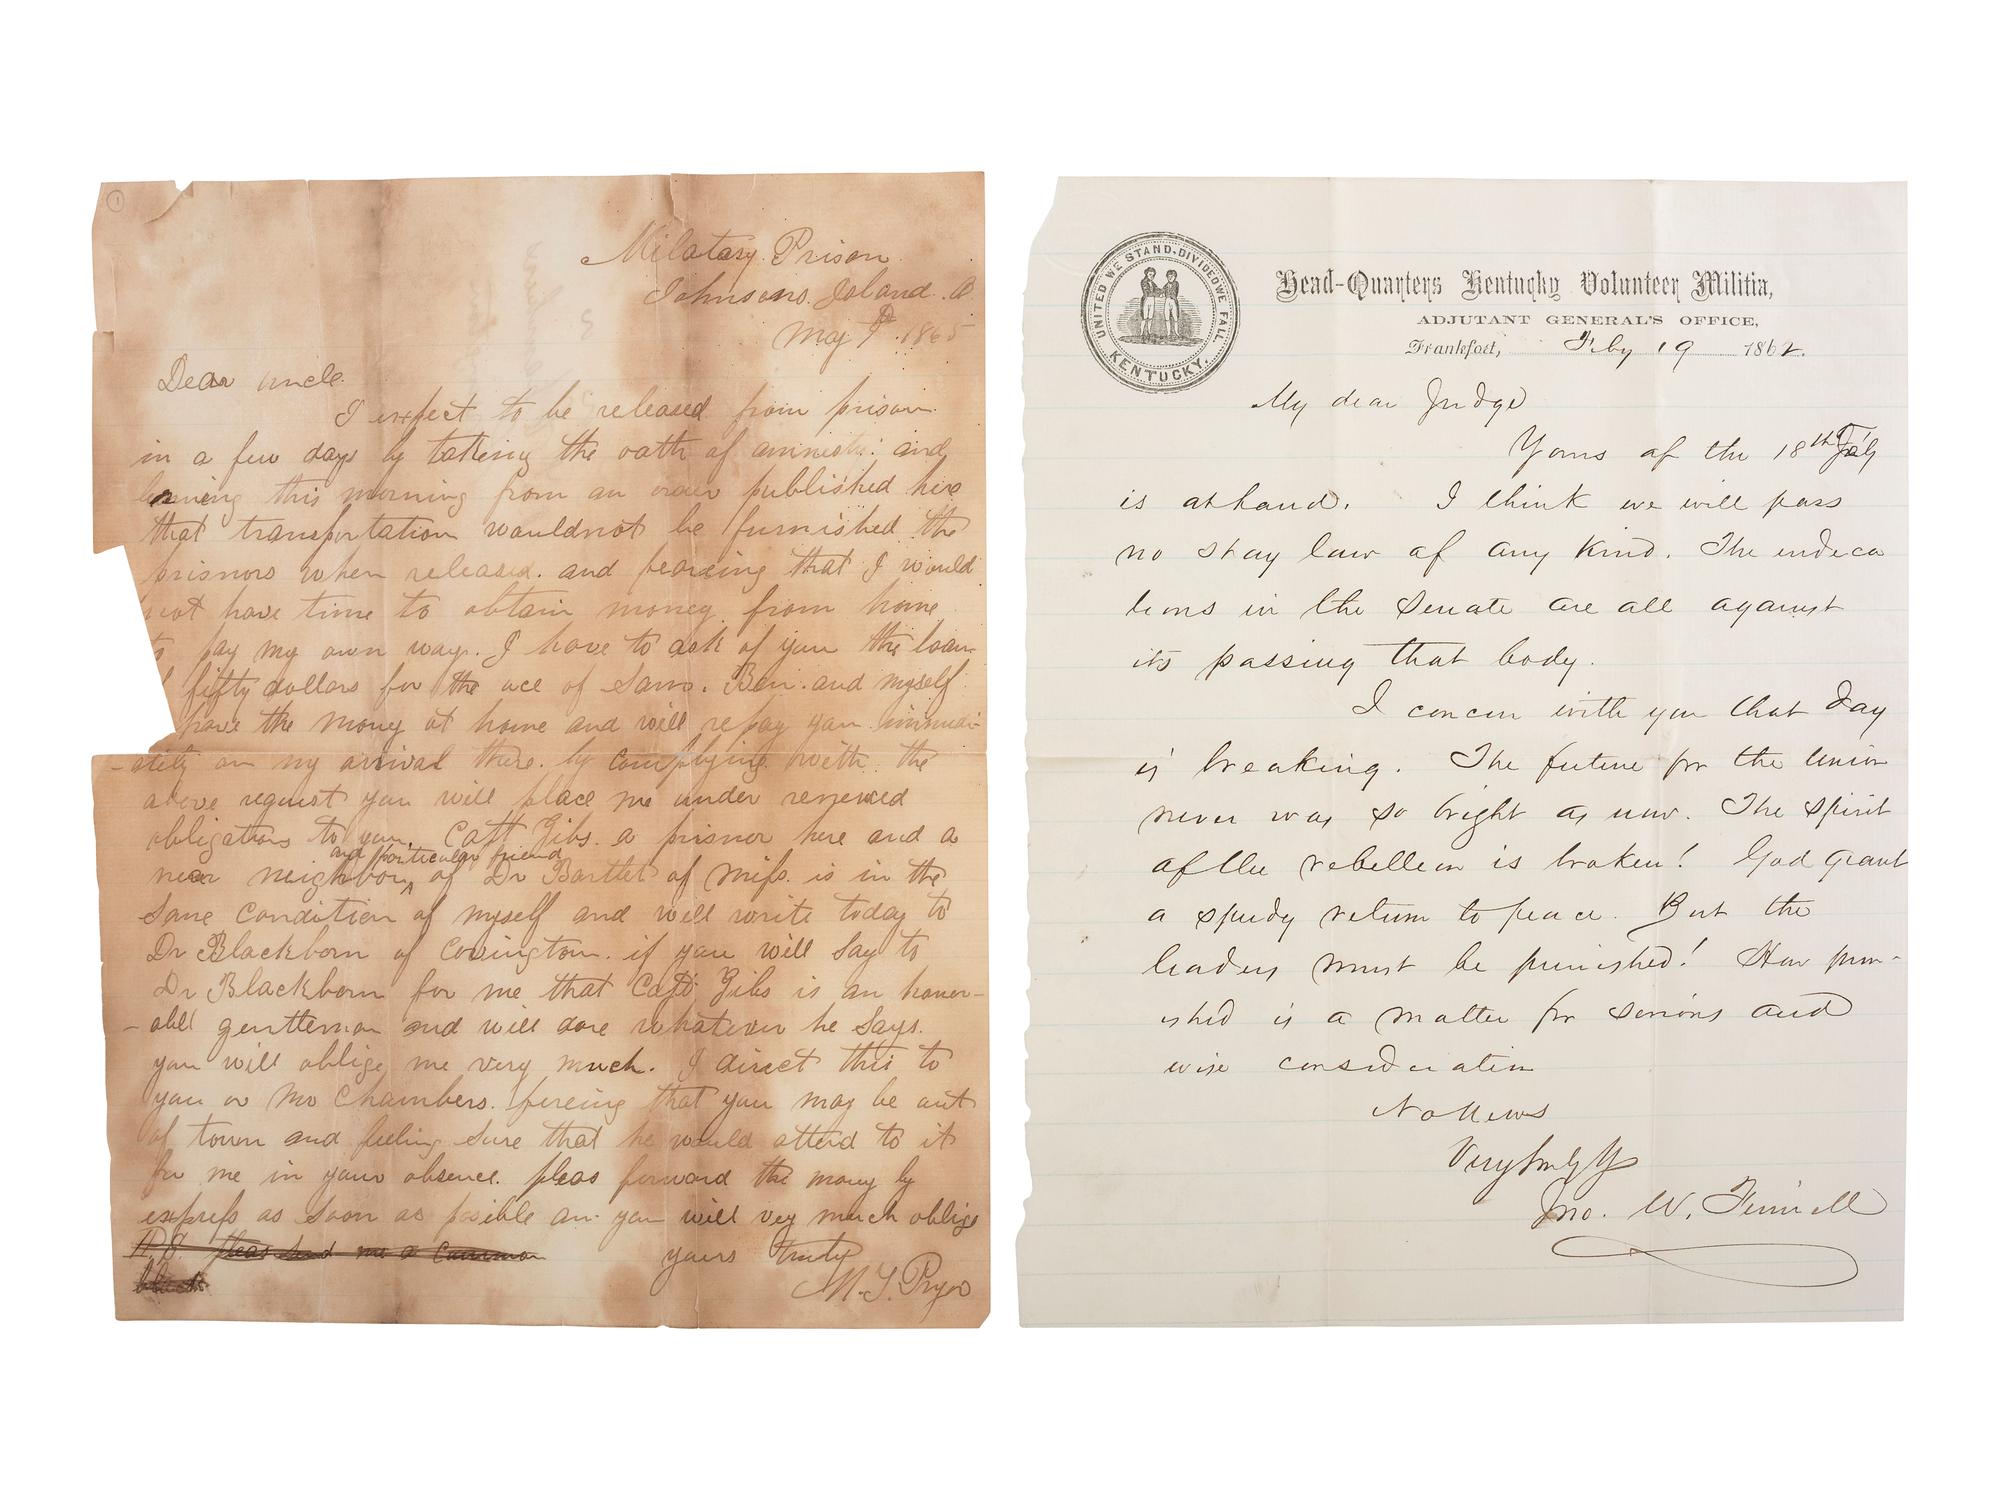 1
Milatary Prison
Johnsons Island. O
May 9th 1865
Dear uncle.
I expect to be released from prison
in a few days by takeing the oath of amnisty: and
lerning this morning from an order published here
that transportation wouldnot be furnished the
prisnors when released. and feareing that I would
not have time to obtain money from home
to pay my own way. I have to ask of you the loan
fifty dollars for the use of Same. Ben. and myself
have the money at home and will repay you immedi-
-ately on my arrival there. by complying with the
above request you will place me under renewed
obligations to you. Capt Gibs. a prisnor here and a
near neighbor and particular friend of Dr Bartlet of Miss. is in the
same condition of myself and will write today to
Dr Blackborn of Covington. if you will say to
Dr Blackborn for me that Capt Gibs is an honor-
-abll gentleman and will doe whatever he says.
you will oblige me very much. I direct this to
you or Mr Chambers. fereing that you may be out
of town and feeling sure that he would attend to it
for me in your absence. pleas forward the money by
express as soon as posible an you will vey much oblige
P.S. pleas send me a common
yours truly
M. T. Pryor
UNITED WE STAND. DIVIDED WE FALL.
KENTUCKY.
Head-Quarters Kentucky Volunteer Militia,
ADJUTANT GENERAL'S OFFICE,
Frankfort, Feby 19 1862.
My dear Judge
Yours of the 18th Feby
is at hand. I think we will pass
no stay law of any kind. The indica
tions in the Senate are all against
its passing that body.
I concur with you that day
is breaking. The future for the Union
never was so bright as now. The spirit
of the rebellion is broken! God grant
a speedy return to peace. But the
leaders must be punished! How pun-
ished is a matter for serious and
wise consideration
No News
Very truly Yr
Jno. W. Finnell